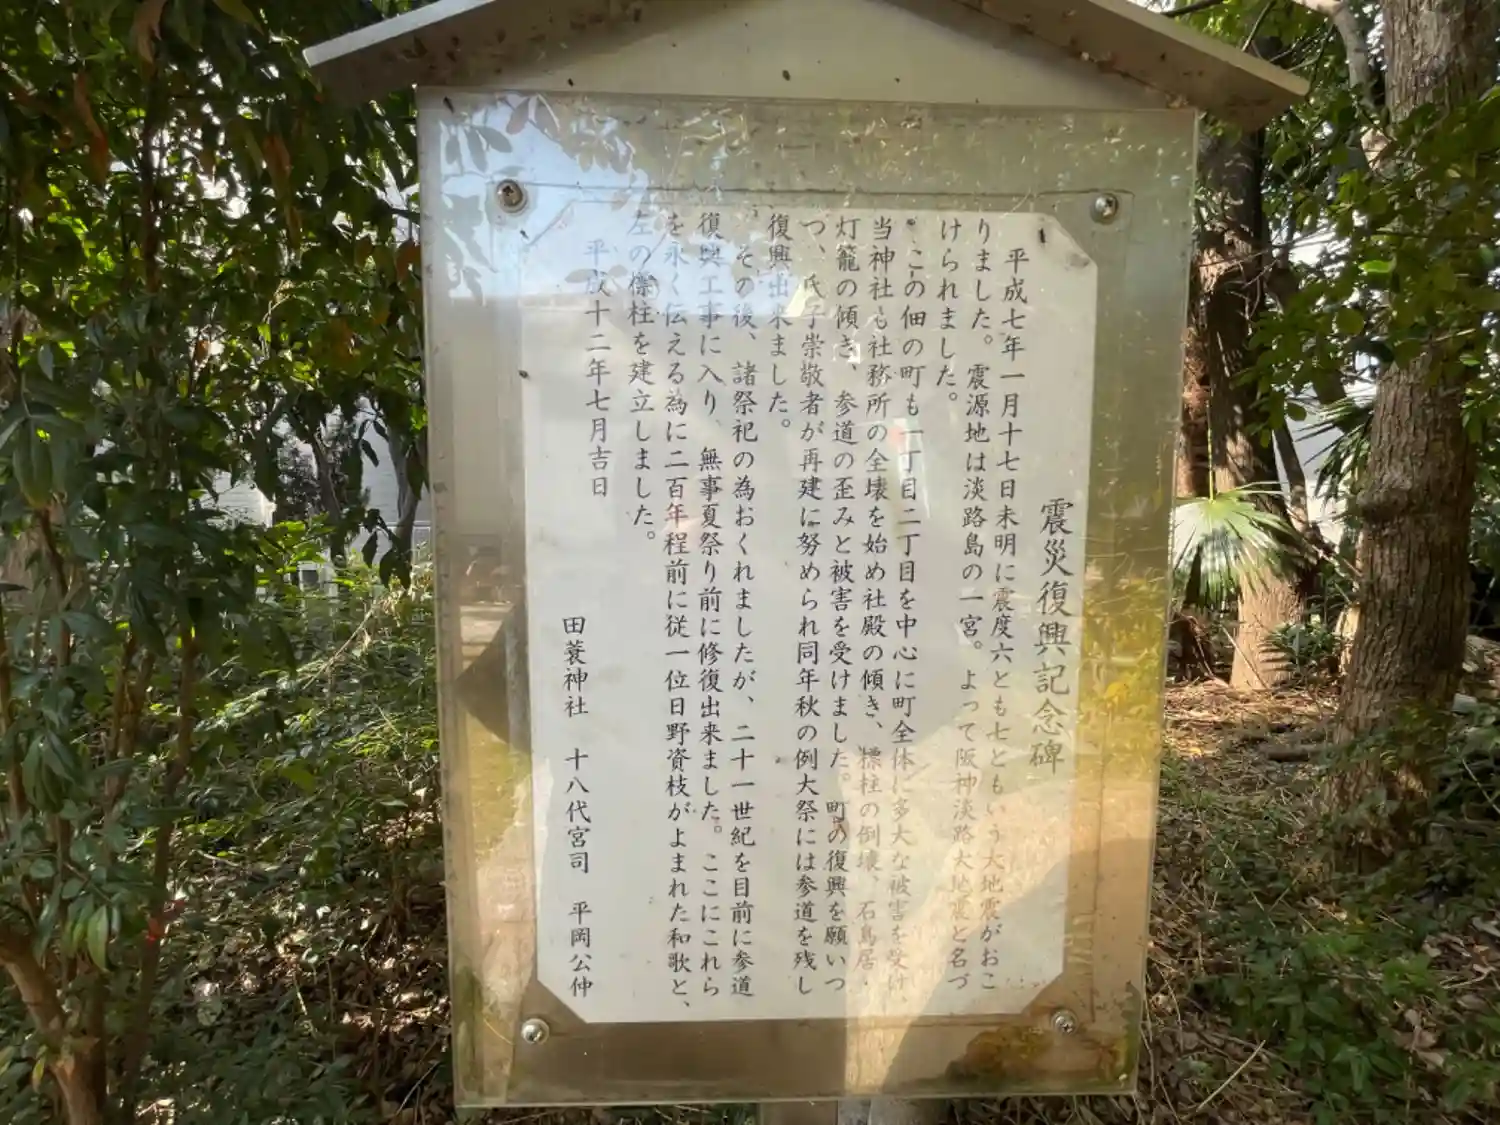 震災復興記念碑
平成七年一月十七日未明に震度六とも七ともいう大地震がおこ
りました。震源地は淡路島の一宮。よって阪神淡路大地震と名づ
けられました。
この佃の町も一丁目二丁目を中心に町全体に多大な被害を受け、
当神社も社務所の全壊を始め社殿の傾き、標柱の倒壊、石鳥居・
灯籠の傾き、参道の歪みと被害を受けました。町の復興を願いつ
つ、氏子崇敬者が再建に努められ同年秋の例大祭には参道を残し
復興出来ました。
その後、諸祭祀の為おくれましたが、二十一世紀を目前に参道
復興工事に入り、無事夏祭り前に修復出来ました。ここにこれら
を永く伝える為に二百年程前に従一位日野資枝がよまれた和歌と、
左の傑柱を建立しました。
平成十二年七月吉日
田蓑神社 十八代宮司 平岡公仲